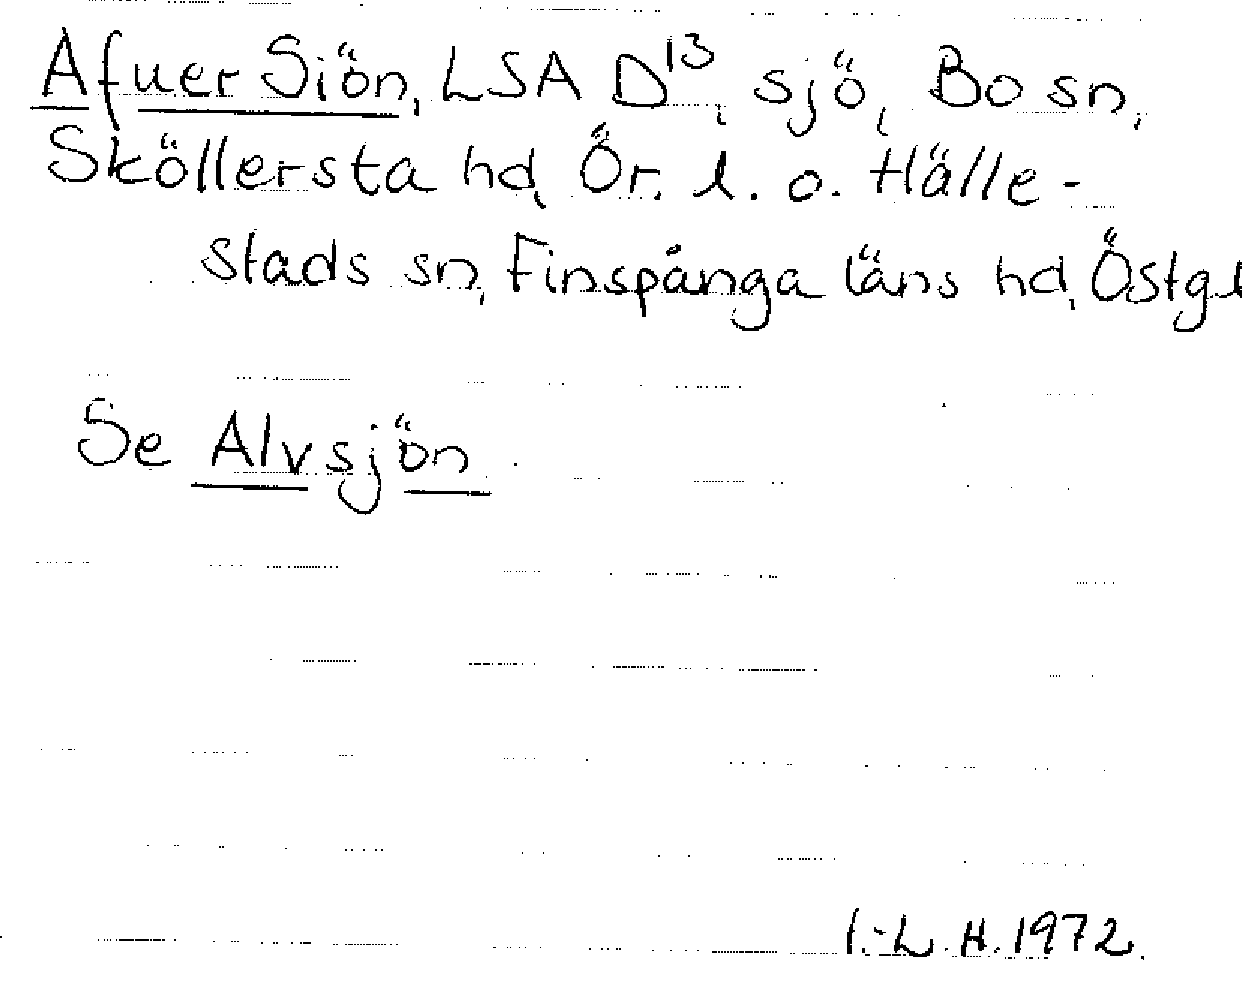 Afuer Siön, LSA D13, sjö, Bo sn,
Sköllersta hd, Ör. l. o. Hälle-
stads sn, Finspånga läns hd, Östgl
Se Alvsjön
I.-L. H. 1972.